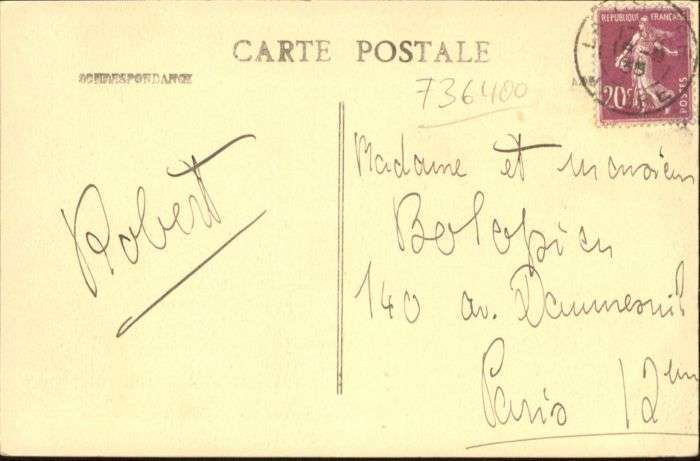 CARTE POSTALE
CORRESPONDANCE
736400
RÉPUBLIQUE FRANÇAISE
20c
POSTES
Robert
Madame et Monsieur
140 av. Daumesnil
Paris 12em